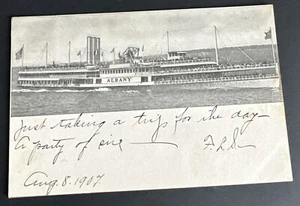 ALBANY
Just taking a trip for the day
A party of six
Aug. 8. 1907.